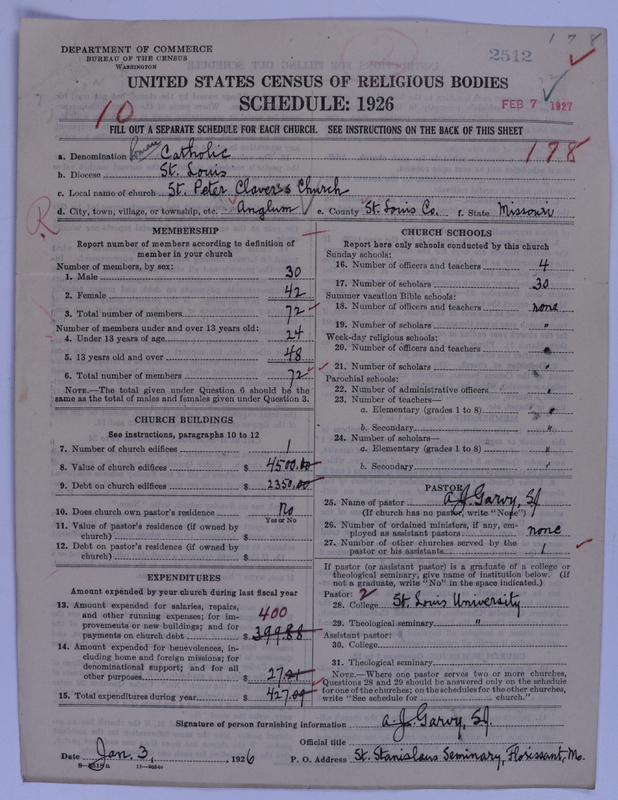 178
DEPARTMENT OF COMMERCE
BUREAU OF THE CENSUS
WASHINGTON
2512
UNITED STATES CENSUS OF RELIGIOUS BODIES
SCHEDULE: 1926
FEB 7 1927
10
FILL OUT A SEPARATE SCHEDULE FOR EACH CHURCH. SEE INSTRUCTIONS ON THE BACK OF THIS SHEET
a. Denomination Roman Catholic 178
b. Diocese St. Louis
c. Local name of church St. Peter Claver's Church
d. City, town, village, or township, etc. Anglum e. County St. Louis Co. f. State Missouri
R
MEMBERSHIP
Report number of members according to definition of
member in your church
Number of members, by sex:
1. Male 30
2. Female 42
3. Total number of members 72
Number of members under and over 13 years old:
4. Under 13 years of age 24
5. 13 years old and over 48
6. Total number of members 72
NOTE.—The total given under Question 6 should be the
same as the total of males and females given under Question 3.
CHURCH BUILDINGS
See instructions, paragraphs 10 to 12
7. Number of church edifices 1
8. Value of church edifices $ 4500.00
9. Debt on church edifices $ 2350.00
10. Does church own pastor's residence? No
Yes or No
11. Value of pastor's residence (if owned by
church) $
12. Debt on pastor's residence (if owned by
church) $
EXPENDITURES
Amount expended by your church during last fiscal year
13. Amount expended for salaries, repairs,
and other running expenses; for im-
provements or new buildings; and for
payments on church debt $ 399.88
400
14. Amount expended for benevolences, in-
cluding home and foreign missions; for
denominational support; and for all
other purposes $ 27.21
15. Total expenditures during year $ 427.09
CHURCH SCHOOLS
Report here only schools conducted by this church
Sunday schools:
16. Number of officers and teachers 4
17. Number of scholars 30
Summer vacation Bible schools:
18. Number of officers and teachers none
19. Number of scholars "
Week-day religious schools:
20. Number of officers and teachers "
21. Number of scholars "
Parochial schools:
22. Number of administrative officers "
23. Number of teachers—
a. Elementary (grades 1 to 8) "
b. Secondary "
24. Number of scholars—
a. Elementary (grades 1 to 8) "
b. Secondary "
PASTOR
25. Name of pastor A J. Garvy, S.J
(If church has no pastor, write "None")
26. Number of ordained ministers, if any, em-
ployed as assistant pastors none
27. Number of other churches served by the
pastor or his assistants 1
If pastor (or assistant pastor) is a graduate of a college or
theological seminary, give name of institution below. (If
not a graduate, write "No" in the space indicated.)
Pastor: 2
28. College St. Louis University
29. Theological seminary "
Assistant pastor:
30. College
31. Theological seminary
NOTE.—Where one pastor serves two or more churches,
Questions 28 and 29 should be answered only on the schedule
for one of the churches; on the schedules for the other churches,
write "See schedule for church."
Signature of person furnishing information A J Garvy, S.J.
Official title
Date Jan. 3, 1926 P. O. Address St. Stanislaus Seminary, Florissant, Mo.